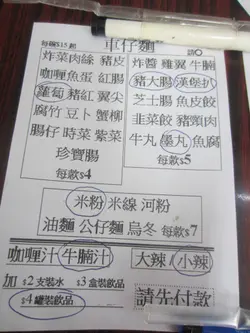 每碗$15起 車仔麵 請○
炸菜肉絲 豬皮
咖喱魚蛋 紅腸
蘿蔔 豬紅 翼尖
腐竹 豆卜 蟹柳
腸仔 時菜 紫菜
珍寶腸
每款$4
炸醬 雞翼 牛腩
豬大腸 漢堡扒
芝士腸 魚皮餃
韭菜餃 豬頸肉
牛丸 墨丸 魚腐
每款$5
米粉 米線 河粉
油麵 公仔麵 烏冬 每款$7
咖喱汁 牛腩汁 大辣 / 小辣
加 $2 支裝水 $3 盒裝飲品
$4 罐裝飲品
請先付款